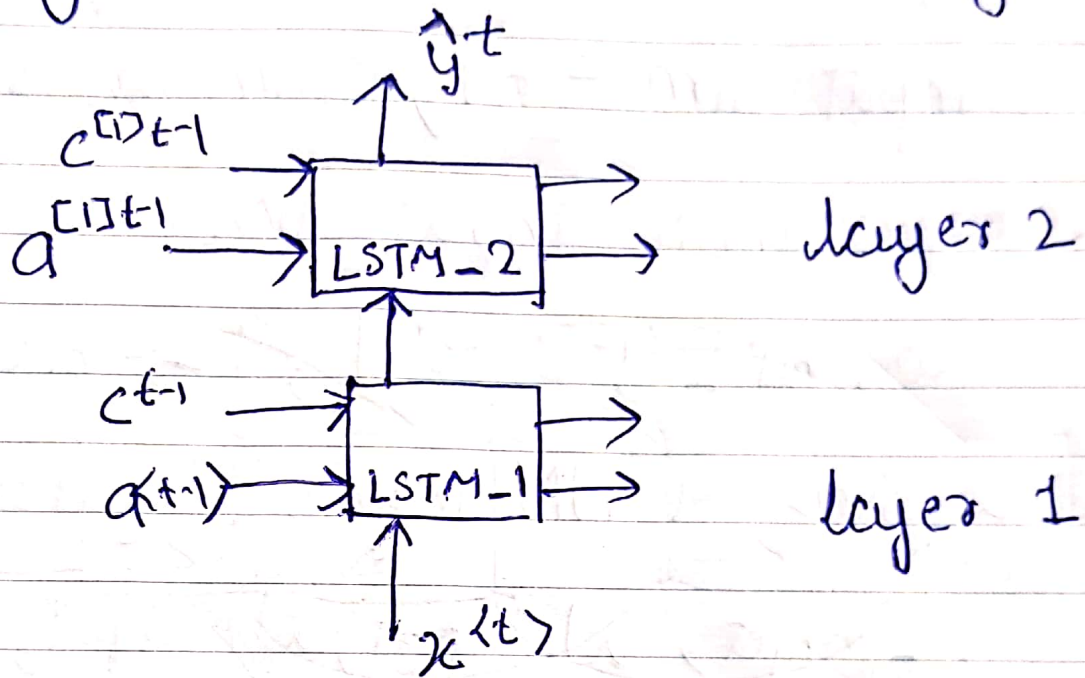 ŷ^t
c^[1]t-1
a^[1]t-1
LSTM_2
layer 2
c^t-1
a<t-1>
LSTM_1
layer 1
x^<t>